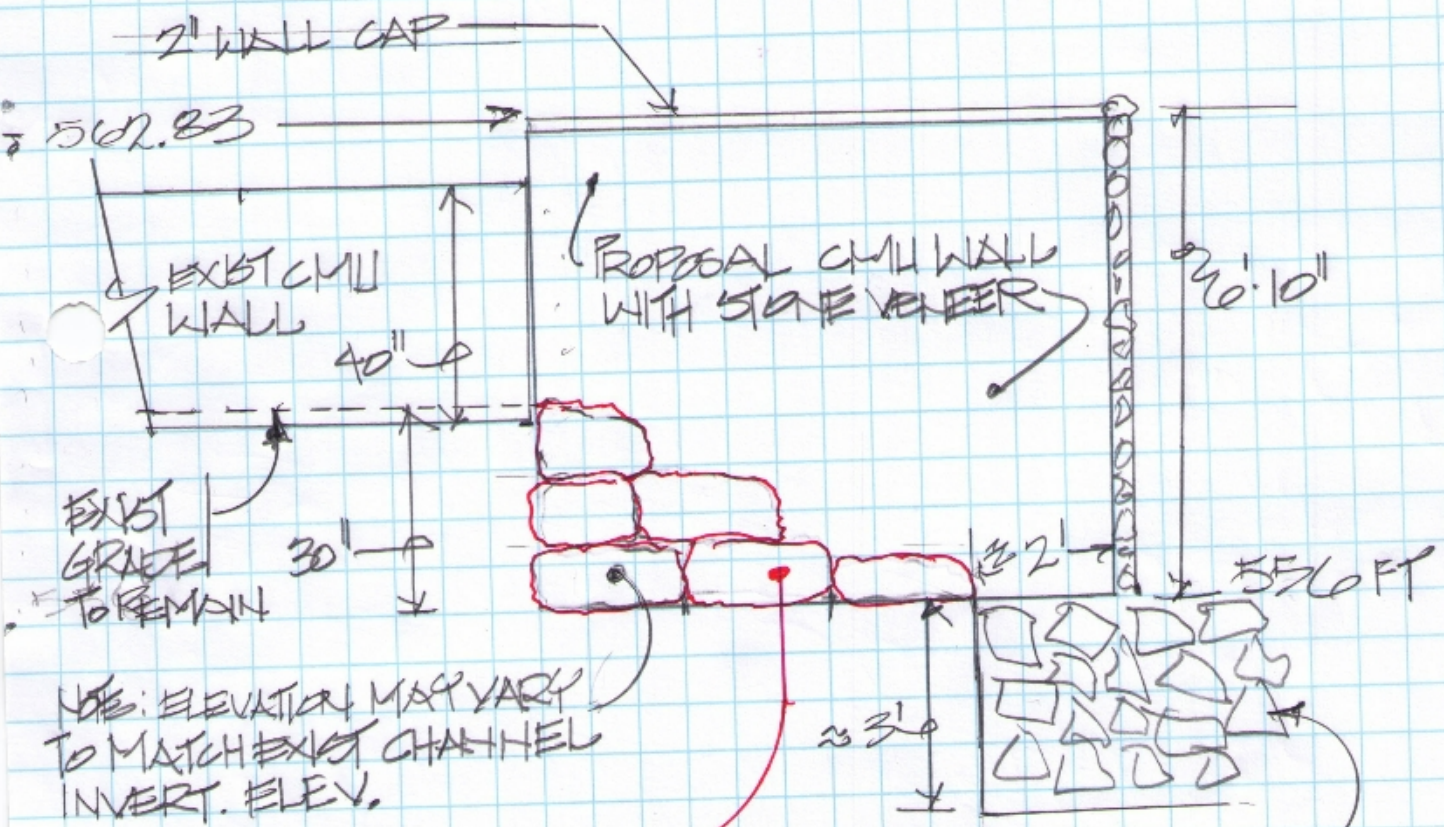 2" WALL CAP
562.83
EXIST CMU
WALL
40"
PROPOSAL CMU WALL
WITH STONE VENEER
6'-10"
EXIST
GRADE
TO REMAIN
30"
≈ 2'
556 FT
NOTE: ELEVATION MAY VARY
TO MATCH EXIST CHANNEL
INVERT. ELEV.
≈ 3'